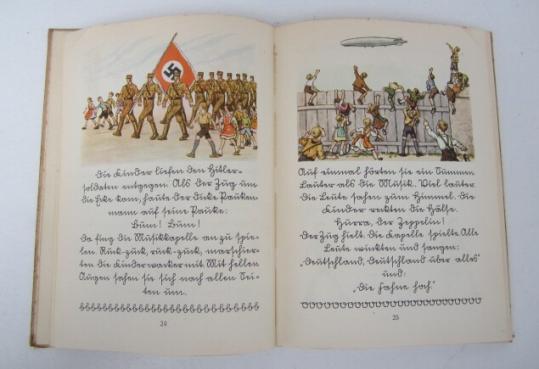 Die Kinder liefen den Hitler-
soldaten entgegen. Als der Zug um
die Ecke kam, haute der dicke Pauken-
mann auf seine Pauke:
Bum! Bum!
Da fing die Musikkapelle an zu spie-
len. Ruck-zuck, ruck-zuck, marschier-
ten die Kinder wacker mit. Mit hellen
Augen sahen sie sich nach allen Sei-
ten um.
24
Auf einmal hörten sie ein Summen.
Lauter als die Musik. Viel lauter.
Die Leute sahen zum Himmel. Die
Kinder reckten die Hälse.
Hurra, der Zeppelin!
Der Zug hielt. Die Kapelle spielte. Alle
Leute winkten und sangen:
„Deutschland, Deutschland über alles“
und:
„Die Fahne hoch.“
25